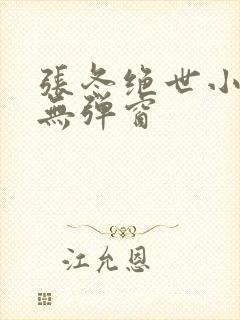 張冬绝世小
無弹窗
江允恩